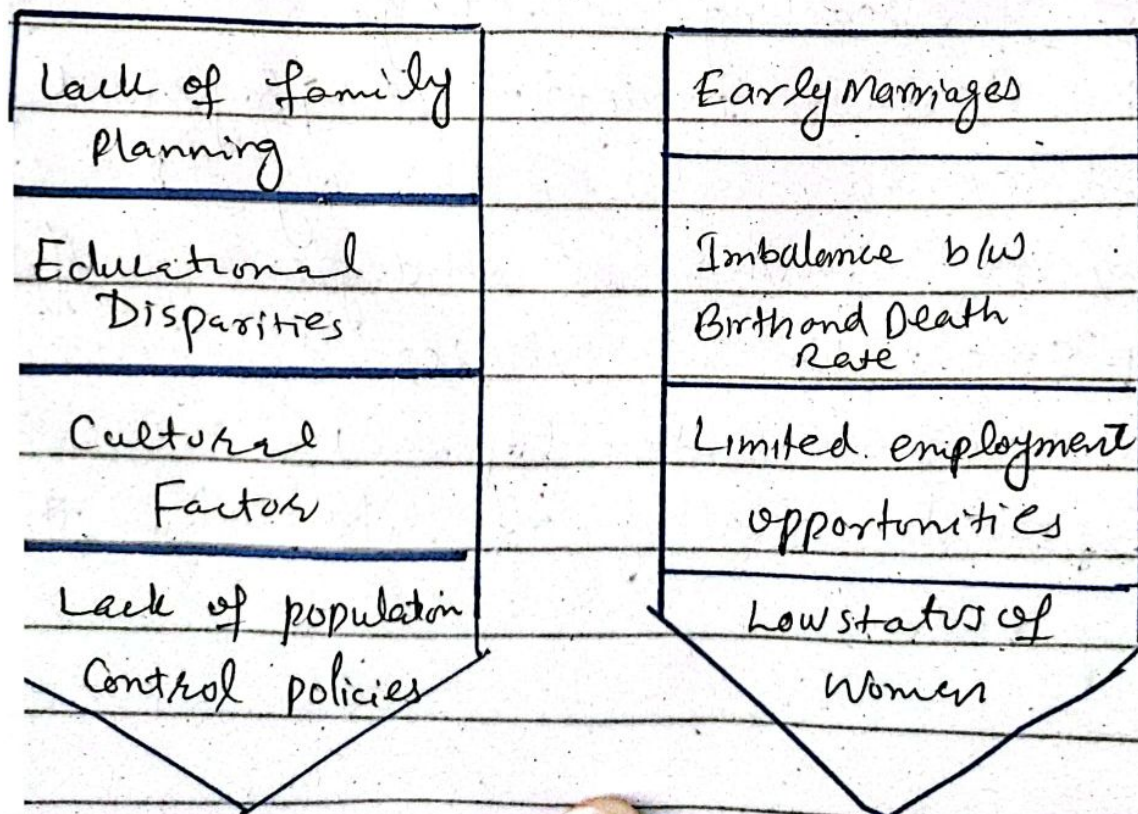 Lack of family
Planning
Educational
Disparities
Cultural
Factor
Lack of population
Control policies
Early Marriages
Imbalance b/w
Birth and Death
Rate
Limited employment
opportunities
Low status of
Women